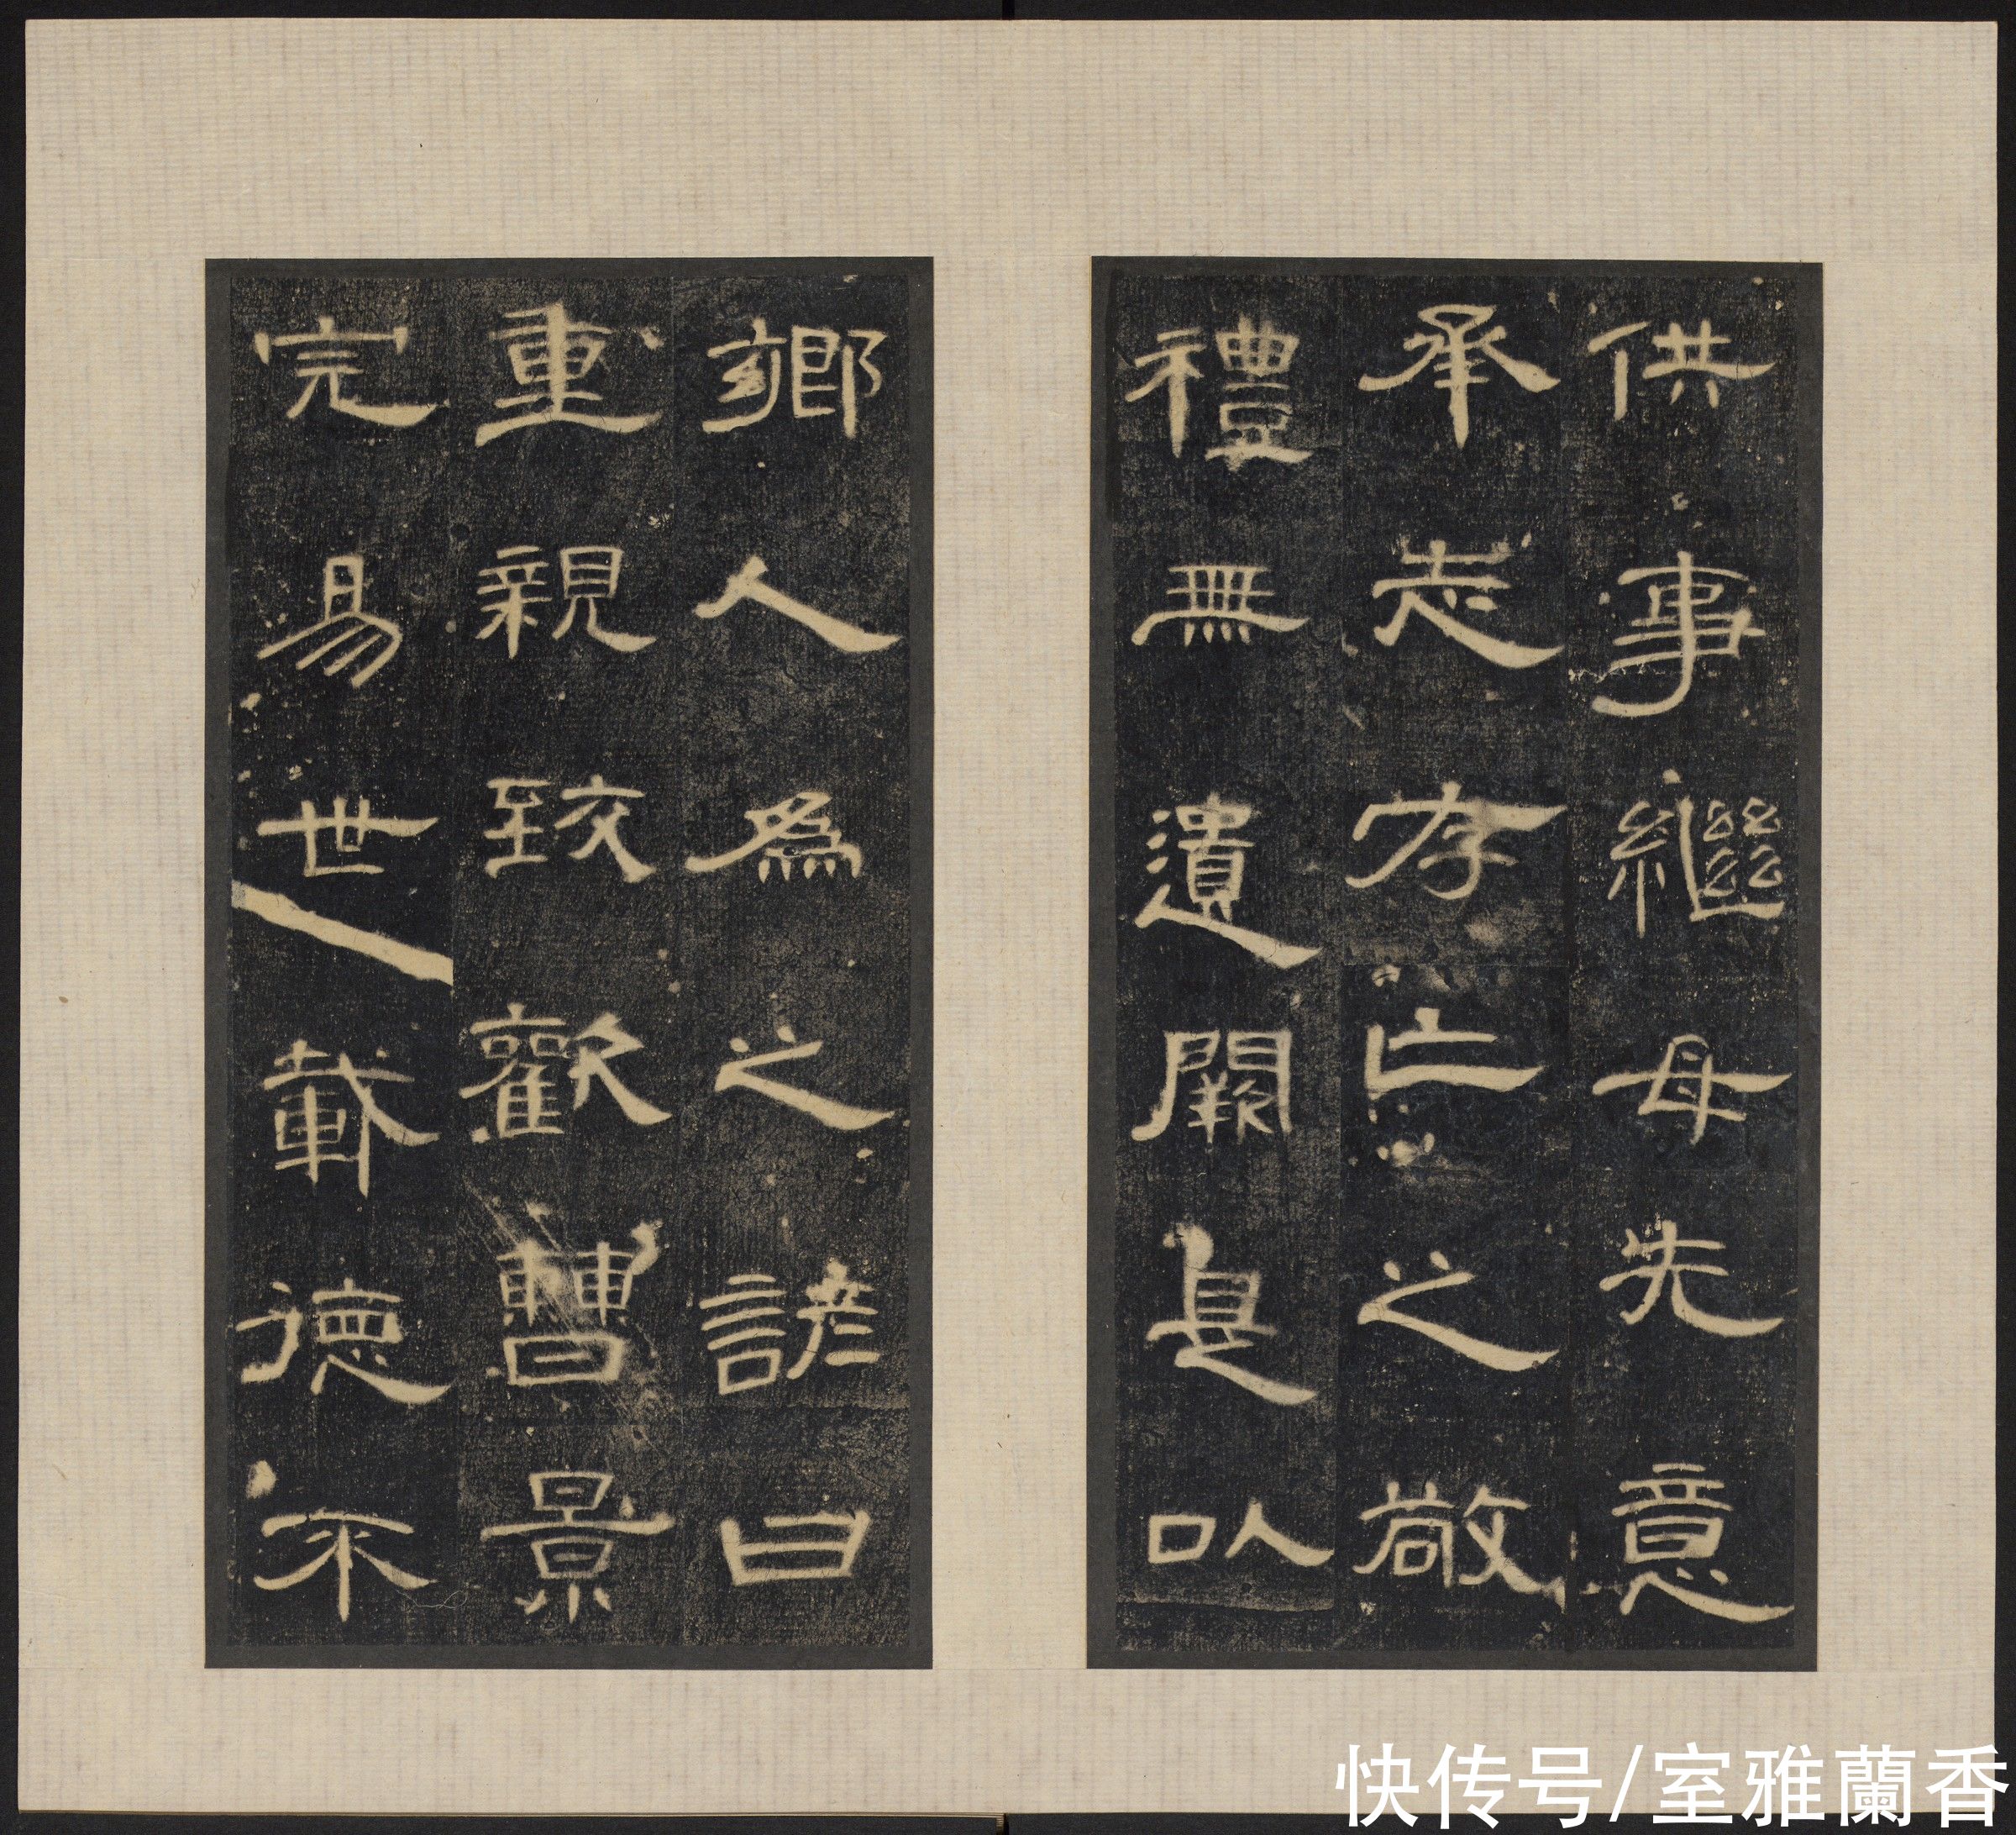 供事繼母先意
承志存亡之敬
禮無遺闕是以
鄉人爲之諺曰
重親致歡曹景
完易世載德不
快传号/室雅蘭香